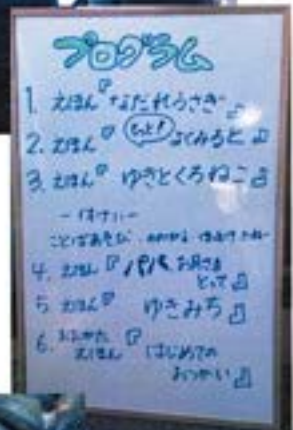 プログラム
1. えほん『なだれうさぎ』
2. えほん『もっと！よくみると』
3. えほん『ゆきとくろねこ』
ことばあそび
4. えほん『パパ、お月さま
とって』
5. えほん『ゆきみち』
6. おおがた
えほん『はじめての
おつかい』